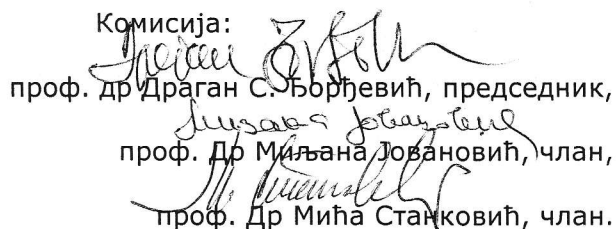 Комисија:
проф. др Драган С. Ђорђевић, председник,
проф. Др Миљана Јовановић, члан,
проф. Др Мића Станковић, члан.